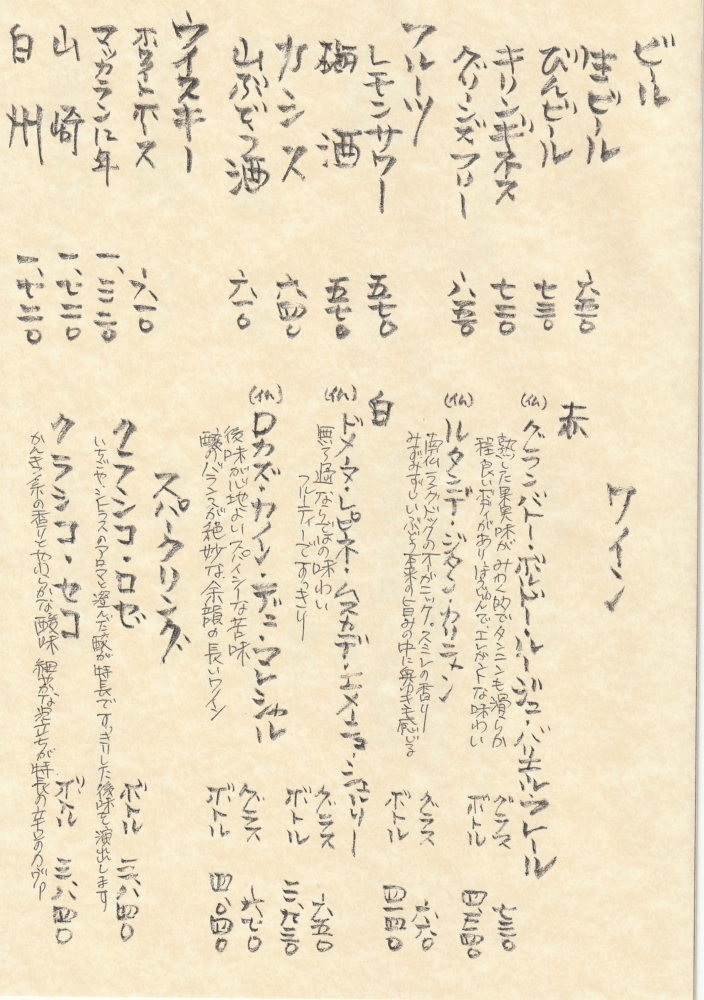 ビール
生ビール 六五〇
びんビール 七三〇
キリンギネス 七三〇
グリーンズフリー 八五〇
フルーツ
レモンサワー 五七〇
梅酒 五七〇
カシス 六四〇
山ぶどう酒 六一〇
ウイスキー
ホワイトホース 六一〇
マッカラン12年 一、三二〇
山崎 一、七二〇
白州 一、七二〇
ワイン
赤
(仏) グランバトー・ボルドー・ルージュ・バリエール・フレール
熟した果実味がみわく的でタンニンも滑らか
程良い渋みがありはずんで、エレガントな味わい
グラス 七三〇
ボトル
(仏) ルタンデ・ジタン・カリニャン
南仏ラングドックのオーガニック。スミレの香り
みずみずしいぶどう本来の旨みの中に奥ゆきも感じる
グラス 六六〇
ボトル
白
(仏) ドメーヌ・レピネ・ムスカデ・セーヴル・エ・メーヌ・シュール・リー
無ろ過ならではの味わい
フルーティーですっきり
グラス 六五〇
ボトル 三、九三〇
(仏) ロカズ・カノン・デュ・マレシャル
後味が心地よいスパイシーな苦味
酸のバランスが絶妙な余韻の長いワイン
グラス 六七〇
ボトル 四、〇四〇
スパークリング
クラシコ・ロゼ ボトル 三、八四〇
いちごやシトラスのアロマと澄んだ酸が特長ですっきりした後味を演出します
クラシコ・セコ ボトル 三、八四〇
かんきつ系の香りとやわらかな酸味 細やかな泡立ちが特長の辛口のカヴァ